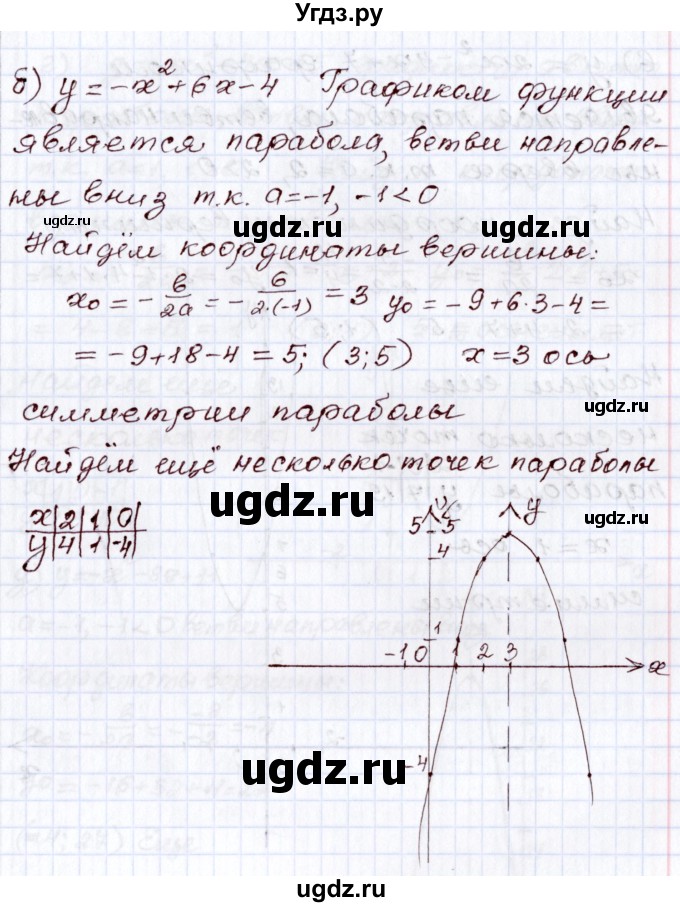 Угдз.ру
б) y = -x² + 6x - 4 Графиком функции
является парабола, ветви направле-
ны вниз т.к. a = -1, -1 < 0
Найдём координаты вершины:
x₀ = -б/2a = -6/2·(-1) = 3 y₀ = -9 + 6·3 - 4 =
= -9 + 18 - 4 = 5; (3; 5) x = 3 ось
симметрии параболы
Найдём ещё несколько точек параболы
x | 2 | 1 | 0 |
y | 4 | 1 | -4 |
5 5 y
4
1
-1 0 1 2 3 x
-4
ugdz.ru
ugdz.ru
ugdz.ru
ugdz.ru
ugdz.ru
ugdz.ru
ugdz.ru
ugdz.ru
ugdz.ru
ugdz.ru
ugdz.ru